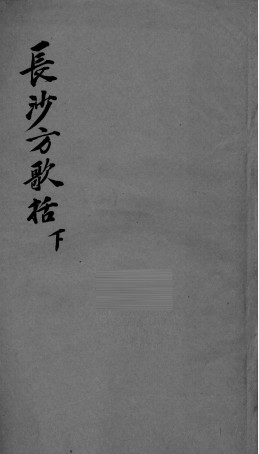 長沙方歌括下